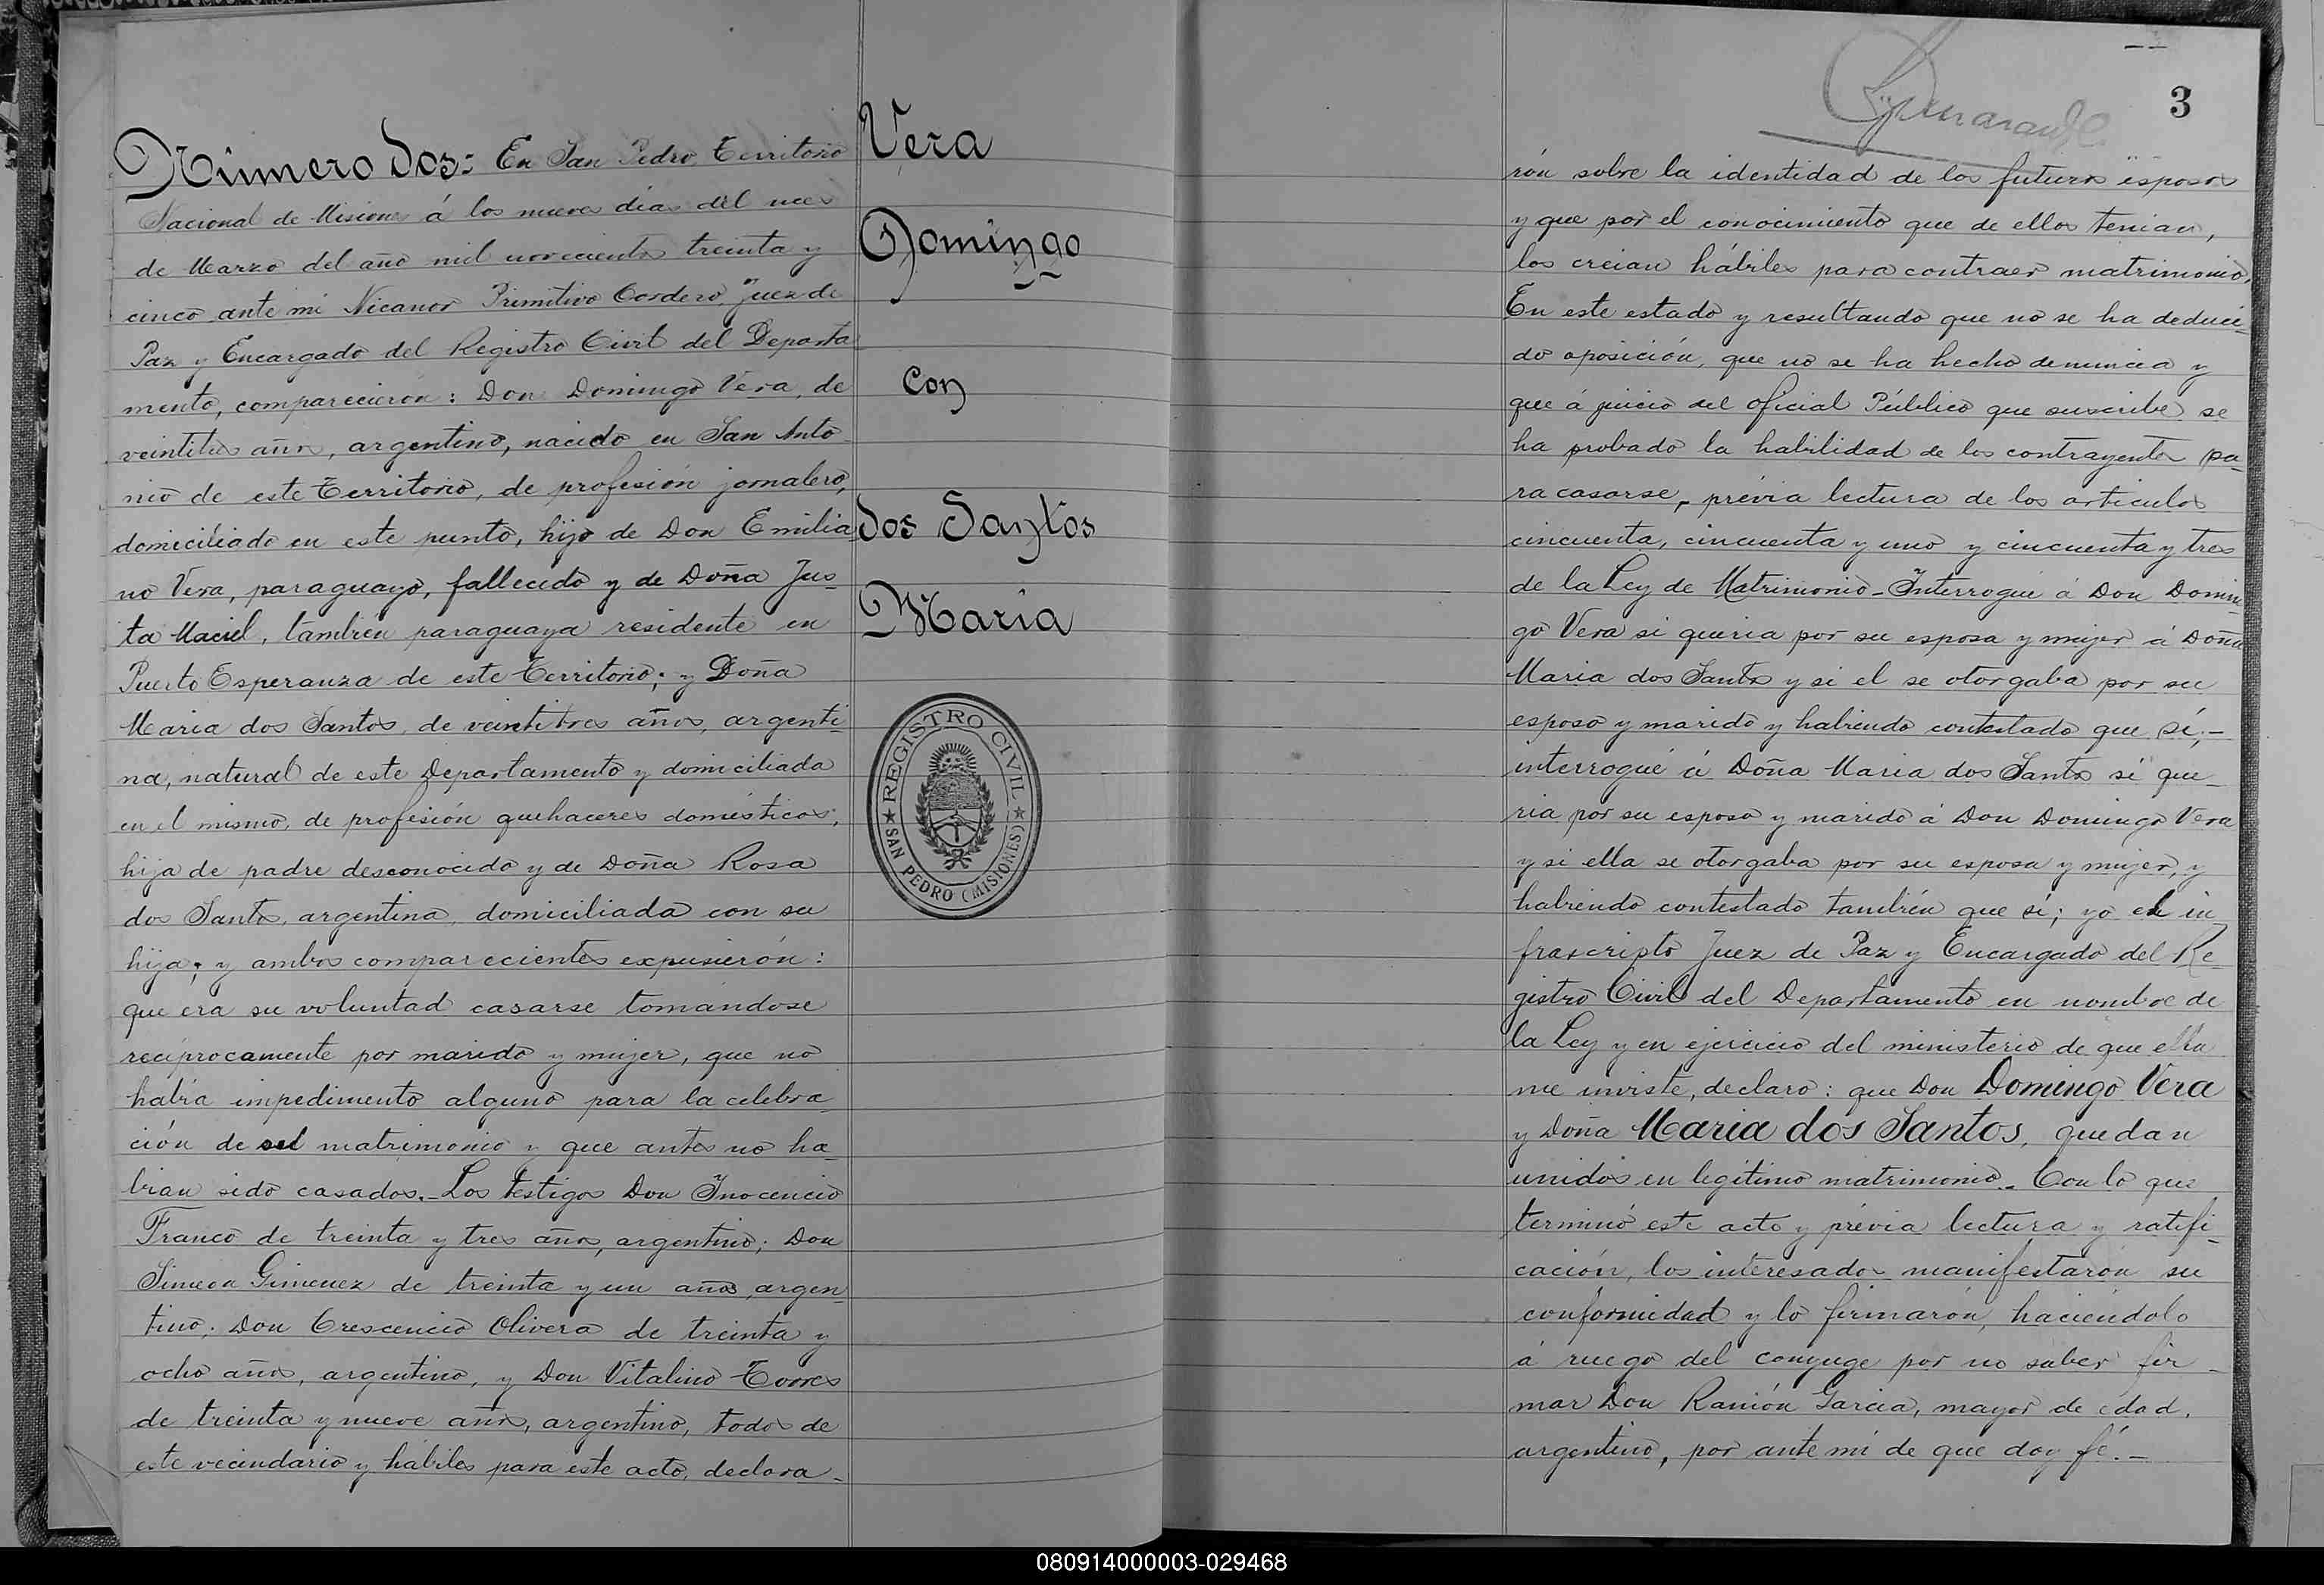 Número dos: En San Pedro, Territorio
Nacional de Misiones á los nueve dias del mes
de Marzo del año mil novecientos treinta y
cinco ante mi Nicanor Primitivo Cordero, Juez de
Paz y Encargado del Registro Civil del Departa
mento, comparecierón: Don Domingo Vera, de
veintitres años, argentino, nacido en San Anto
nio de este Territorio, de profesión jornalero,
domiciliado en este punto, hijo de Don Emilia
no Vera, paraguayo, fallecido y de Doña Jus-
ta Maciel, también paraguaya residente en
Puerto Esperanza de este Territorio; y Doña
Maria dos Santos, de veintitres años, argenti-
na, natural de este Departamento y domiciliada
en el mismo, de profesión quehaceres domésticos,
hija de padre desconocido y de Doña Rosa
dos Santos, argentina, domiciliada con su
hija; y ambos comparecientes expusierón:
que era su voluntad casarse tomandose
reciprocamente por marido y mujer, que no
habia impedimento alguno para la celebra-
ción de su matrimonio y que antes no ha-
bian sido casados.- Los testigos Don Inocencio
Franco de treinta y tres años, argentino; Don
Simeon Gimenez de treinta y un años, argen-
tino; Don Crescencio Olivera de treinta y
ocho años, argentino, y Don Vitalino Torres
de treinta y nueve años, argentino, todos de
este vecindario y hábiles para este acto, declara-
Vera
Domingo
con
dos Santos
Maria
REGISTRO CIVIL
SAN PEDRO (MISIONES)
3
rón sobre la identidad de los futuros esposos
y que por el conocimiento que de ellos tenian,
los creian hábiles para contraer matrimonio.
En este estado y resultando que no se ha deduci-
do oposición, que no se ha hecho denuncia y
que á juicio del oficial Público que suscribe se
ha probado la habilidad de los contrayentes pa-
ra casarse, prévia lectura de los articulos
cincuenta, cincuenta y uno y cincuenta y tres
de la Ley de Matrimonio- Interrogué á Don Domin
go Vera si queria por su esposa y mujer á Doña
Maria dos Santos y si el se otorgaba por su
esposo y marido y habiendo contestado que sí;-
interrogué á Doña Maria dos Santos si que-
ria por su esposo y marido á Don Domingo Vera
y si ella se otorgaba por su esposa y mujer, y
habiendo contestado también que sí; yo el in-
frascripto Juez de Paz y Encargado del Re-
gistro Civil del Departamento en nombre de
la Ley y en ejercicio del ministerio de que ella
me inviste, declaro: que Don Domingo Vera
y Doña Maria dos Santos, quedan
unidos en legitimo matrimonio.- Con lo que
terminó este acto y prévia lectura y ratifi-
cación, los interesados manifestarón su
conformidad y lo firmarón, haciéndolo
á ruego del conyuge por no saber fir-
mar Don Ramón Garcia, mayor de edad,
argentino, por ante mi de que doy fé.-
080914000003-029468